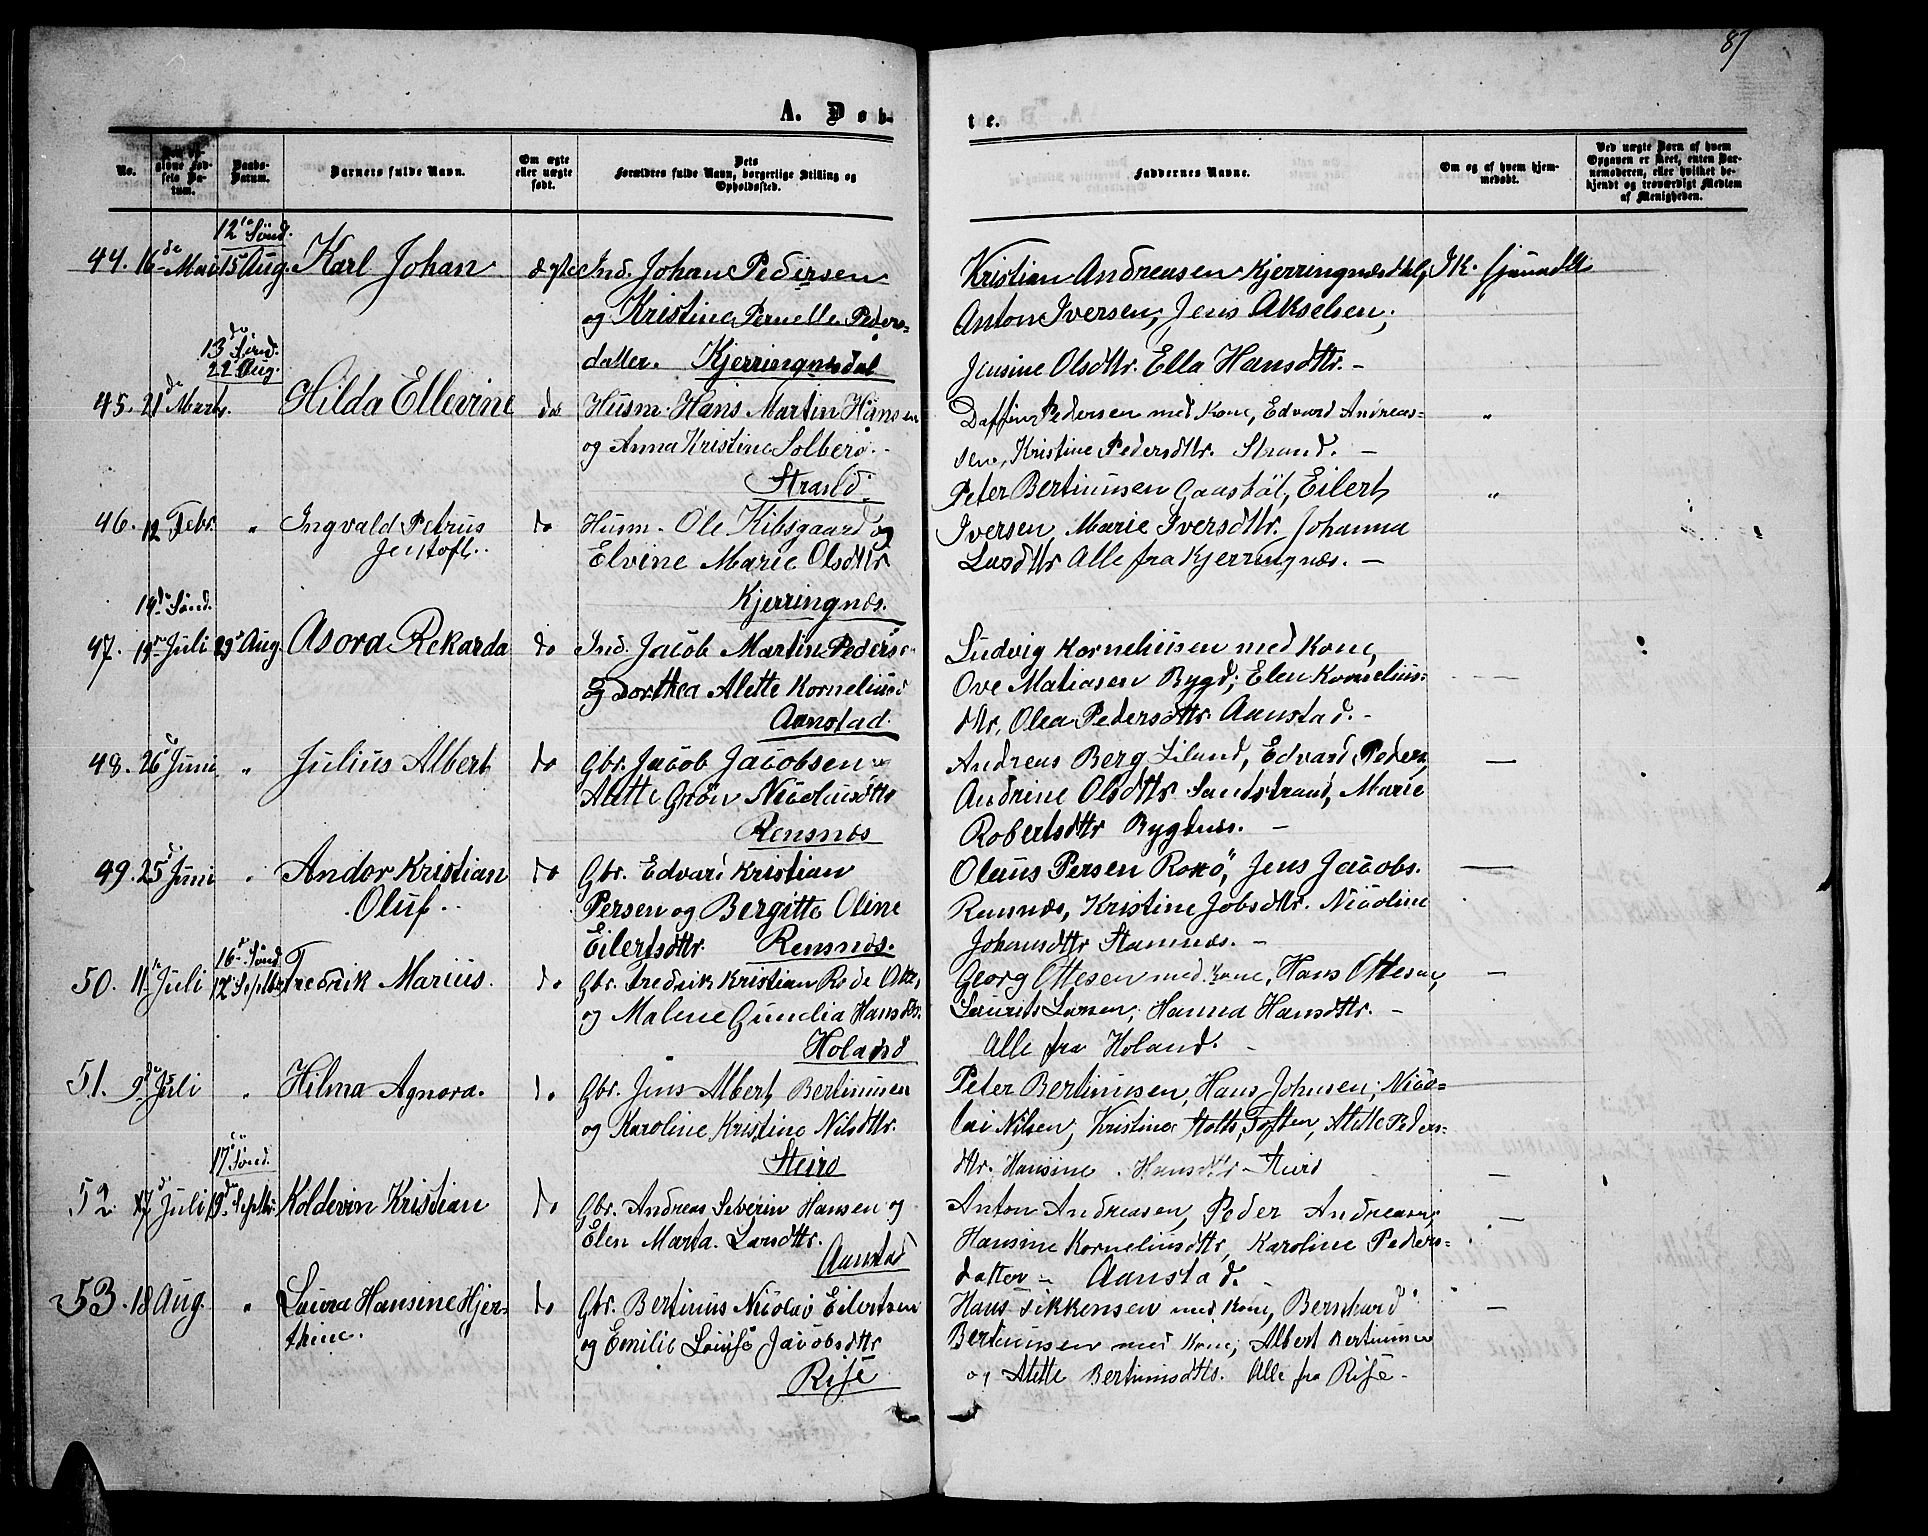 87
A. Døb-
te.
No.
Den opgivne Fødsels Datum.
Daabs-Datum.
Barnets fulde Navn.
Om ægte eller uægte født.
Dets Forældres fulde Navn, borgerlige Stilling og Opholdssted.
Faddernes Navne.
Om og af hvem hjemmedøbt.
Ved uægte Børn af hvem Opgaven er skeet, enten Barnemoderen, eller hvilket bekjendt og troværdigt Medlem af Menigheden.
12te Sønd.
44. 16de Mai 15 Aug. Karl Johan ægte Ind. Johan Pedersen
og Kristine Pernelle Peders-
datter. Kjerringnesdal
Kristian Andreasen Kjerringnesdal, I K. hjemmedbt
Anton Iversen, Jens Akselsen,
Jensine Olsdtr. Ella Hansdtr. -
13de Sønd.
22 Aug.
45. 21de Marts. Hilda Ellevine do Husm. Hans Martin Hansen
og Anna Kristine Solberg.
Strand.
Daffin Pedersen med Kone, Edvard Andreas- "
sen, Kristine Pedersdtr. Strand. -
46. 12 Febr. " Ingvald Petrus do Husm. Ole Kibsgaard og
Jentoft. Elvine Marie Olsdtr
Kjerringnes.
Peter Bertinusen Gaustøl, Eilert "
Iversen, Marie Iversdtr. Johanna
Larsdtr Alle fra Kjerringnæs. -
14de Sønd.
47. 14de Juli 29de Aug Asora Rekarda do Ind. Jacob Martin Pederse
og Dorthea Alette Kornelius d
Aanstad.
Ludvig Korneliusen med Kone,
Ove Matiasen Bygd; Elen Kornelius- -
dtr, Olea Pedersdtr. Aanstad. -
48. 26de Juni " Julius Albert do Gbr. Jacob Jacobsen og
Alette Grøn Nicolaisdtr
Rensnes
Andreas Berg Liland, Edvard Peders, -
Andrine Olsdtr Sandstrand, Marie
Robertsdtr Bygtnes. -
49. 25de Juni " Andor Kristian do Gbr. Edvard Kristian
Oluf. Persen og Bergitte Oline
Eilertsdtr. Rensnæs.
Olaus Persen Rokø, Jens Jacobs. -
Rensnæs, Kristine Jobsdtr. Nicoline
Johansdtr Stamnæs. -
16de Sønd.
50. 11te Juli 12te Septbr Fredrik Marius. do Gbr. Fredrik Kristian Rede Otte,
og Malene Gundia Hansdtr.
Holand
Georg Ottesen med Kone, Hans Ottesen, -
Laurits Larsen, Hanna Hansdtr. -
Alle fra Holand. -
51. 9de Juli " Hilma Agnora. do Gbr. Jens Albert Bertinusen
og Karoline Kristine Nilsdtr.
Steird
Peter Bertinusen, Hans Johnsen, Nico-
lai Nilsen, Kristine Stolts, Toften, Alette Peders-
dtr. Hansine Hansdtr - Steird -
17de Sønd.
52 17de Juli 19de Septbr. Koldevin Kristian do Gbr. Andreas Severin Hansen og
Elen Marta Larsdtr.
Aanstad
Anton Andreasen, Peder Andreasen, -
Hansine Korneliusdtr, Karoline Peders-
datter - Aanstad. -
53. 18 Aug. " Laura Hansine Hjer- do Gbr. Bertinus Nicolai Eilertsen
thine. og Emilie Louise Jacobsdtr
Risé
Hans Sikkensen med Kone, Bernhard -
Bertinusen med Kone, Albert Bertinusen
og Alette Bertinusdtr. Alle fra Risé -